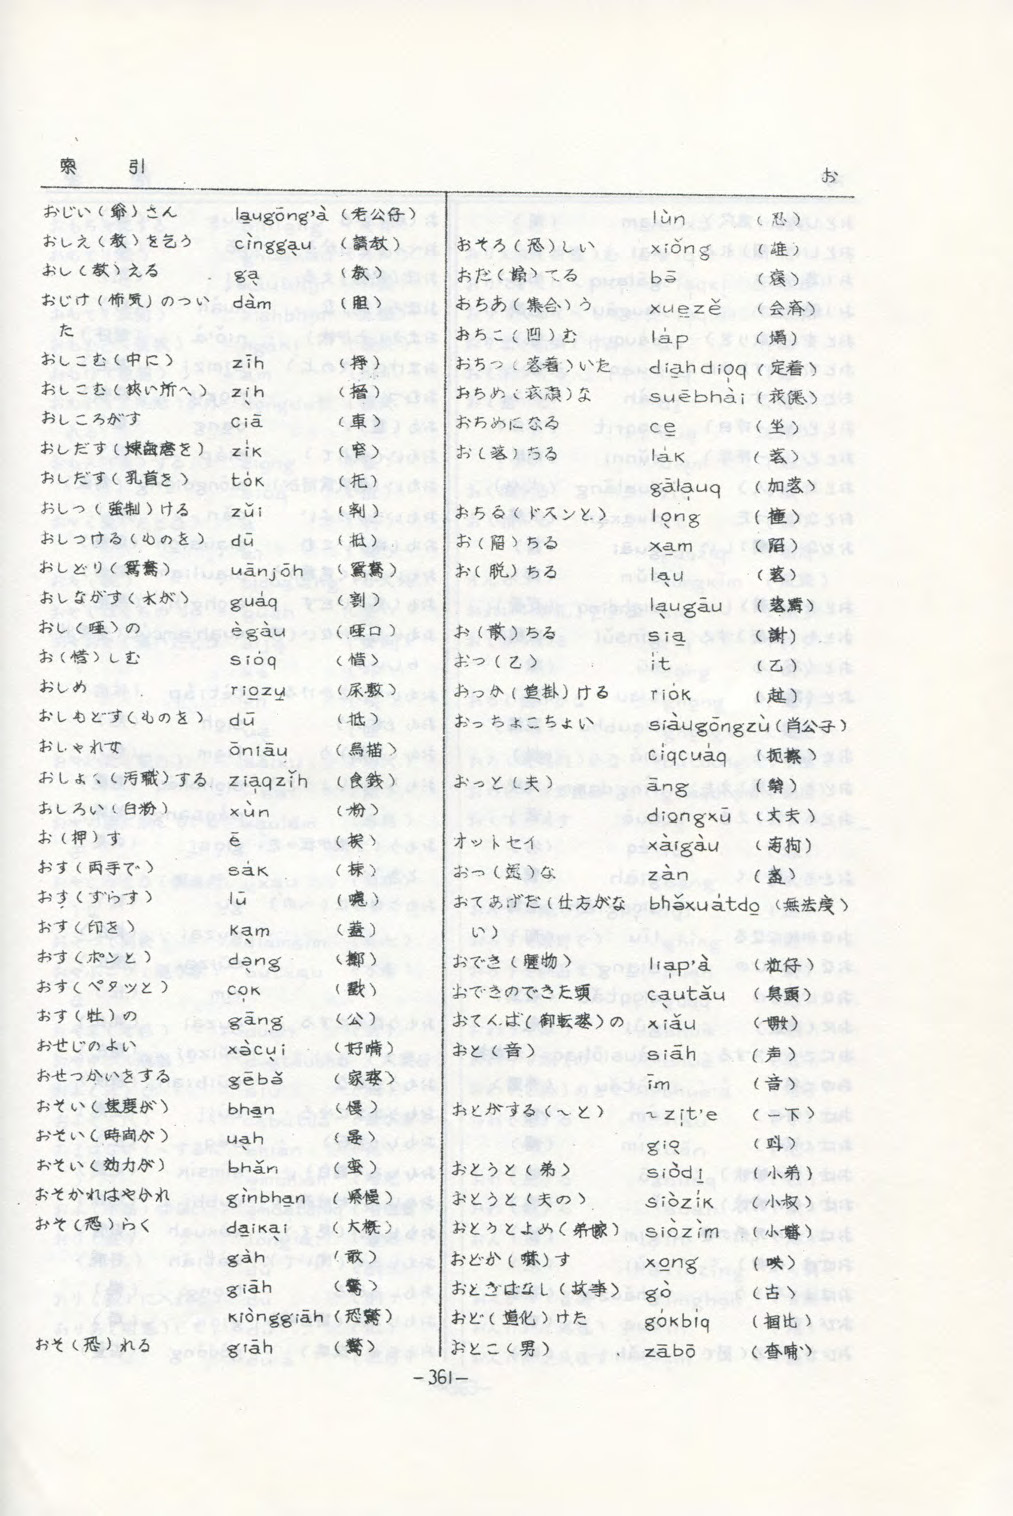 索 引
お
おじい(爺)さん la̱ugōng'à (老公仔)
おしえ(教)を乞う cìnggau (請教)
おし(教)える ga̱ (教)
おじけ(怖気)のつい dàm (胆)
た
おしこむ(中に) zīh
おしこむ(狭い所へ)
おしころがす (車)
おしだす zı̍k (窄)
おしだす(乳首を) tók (托)
おしつ(強制)ける zǔi (制)
おしつける(ものを) dū (抵)
おしどり(鴛鴦) uānjōh (鴛鴦)
おしながす(水が) guáq (割)
おし(唖)の ègàu (唖口)
お(惜)しむ sióq (惜)
おしめ rio̱zu̱ (尿敷)
おしもどす(ものを) dū (抵)
おしゃれで ōniāu
おしょく(汚職)する (食銭)
おしろい(白粉) xùn (粉)
お(押)す ē (挨)
おす(両手で) sák (捒)
おす(ずらす) lù
おす(印を) (蓋)
おす(ポンと) (擲)
おす(ペタッと) (戳)
おす(牡)の gāng (公)
おせじのよい (好嘴)
おせっかいをする gēbǒ (家婆)
おそい(速度が) bha̱n (慢)
おそい(時間が) ua̱h (晏)
おそい(効力が) bhǎn (蛮)
おそかれはやかれ gìnbha̱n (緊慢)
おそ(恐)らく (大概)
gàh (敢)
giāh (驚)
kiònggiāh (恐驚)
おそ(恐)れる giāh (驚)
lùn (忍)
おそろ(恐)しい xiǒng (雄)
おだ(煽)てる bā (褒)
おちあ(集合)う xue̱zě (会斉)
おちこ(凹)む láp (塌)
おちつ(落着)いた (定着)
おちめ(衰頽)な suēbhài
おちめになる ce̱ (坐)
お(落)ちる lák (落)
gāla̱uq (加落)
おちる(ドスンと) (撞)
お(陥)ちる xa̱m (陥)
お(脱)ちる la̱u (落)
la̱ugāu
お(散)ちる sia̱ (謝)
おつ(乙) ít (乙)
おっか(追掛)ける riók (趃)
おっちょこちょい siàugōngzù (肖公子)
cíqcuáq (扼擦)
おっと(夫) āng (翁)
diọngxū (丈夫)
オットセイ xàigàu (海狗)
おつ zàn
おてあげだ(仕方がな bhǒxuátdo̱ (無法度)
い)
おでき(腫物) lia̱p'à (粒仔)
おできのできた頭 (臭頭)
おてんば(御転婆)の xiǎu (嬈)
おと(音) siāh (声)
īm (音)
おとがする(〜と) 〜zi̱t'e (一下)
gio̱ (叫)
おとうと(弟) siòdi̱ (小弟)
おとうと(夫の) siòzík (小叔)
おとうとよめ(弟嫁) siòzìm (小嬸)
おどか(嚇)す xo̱ng
おとぎばなし(故事) gò (古)
おど(道化)けた
おとこ(男) zābō (査哺)
−361−